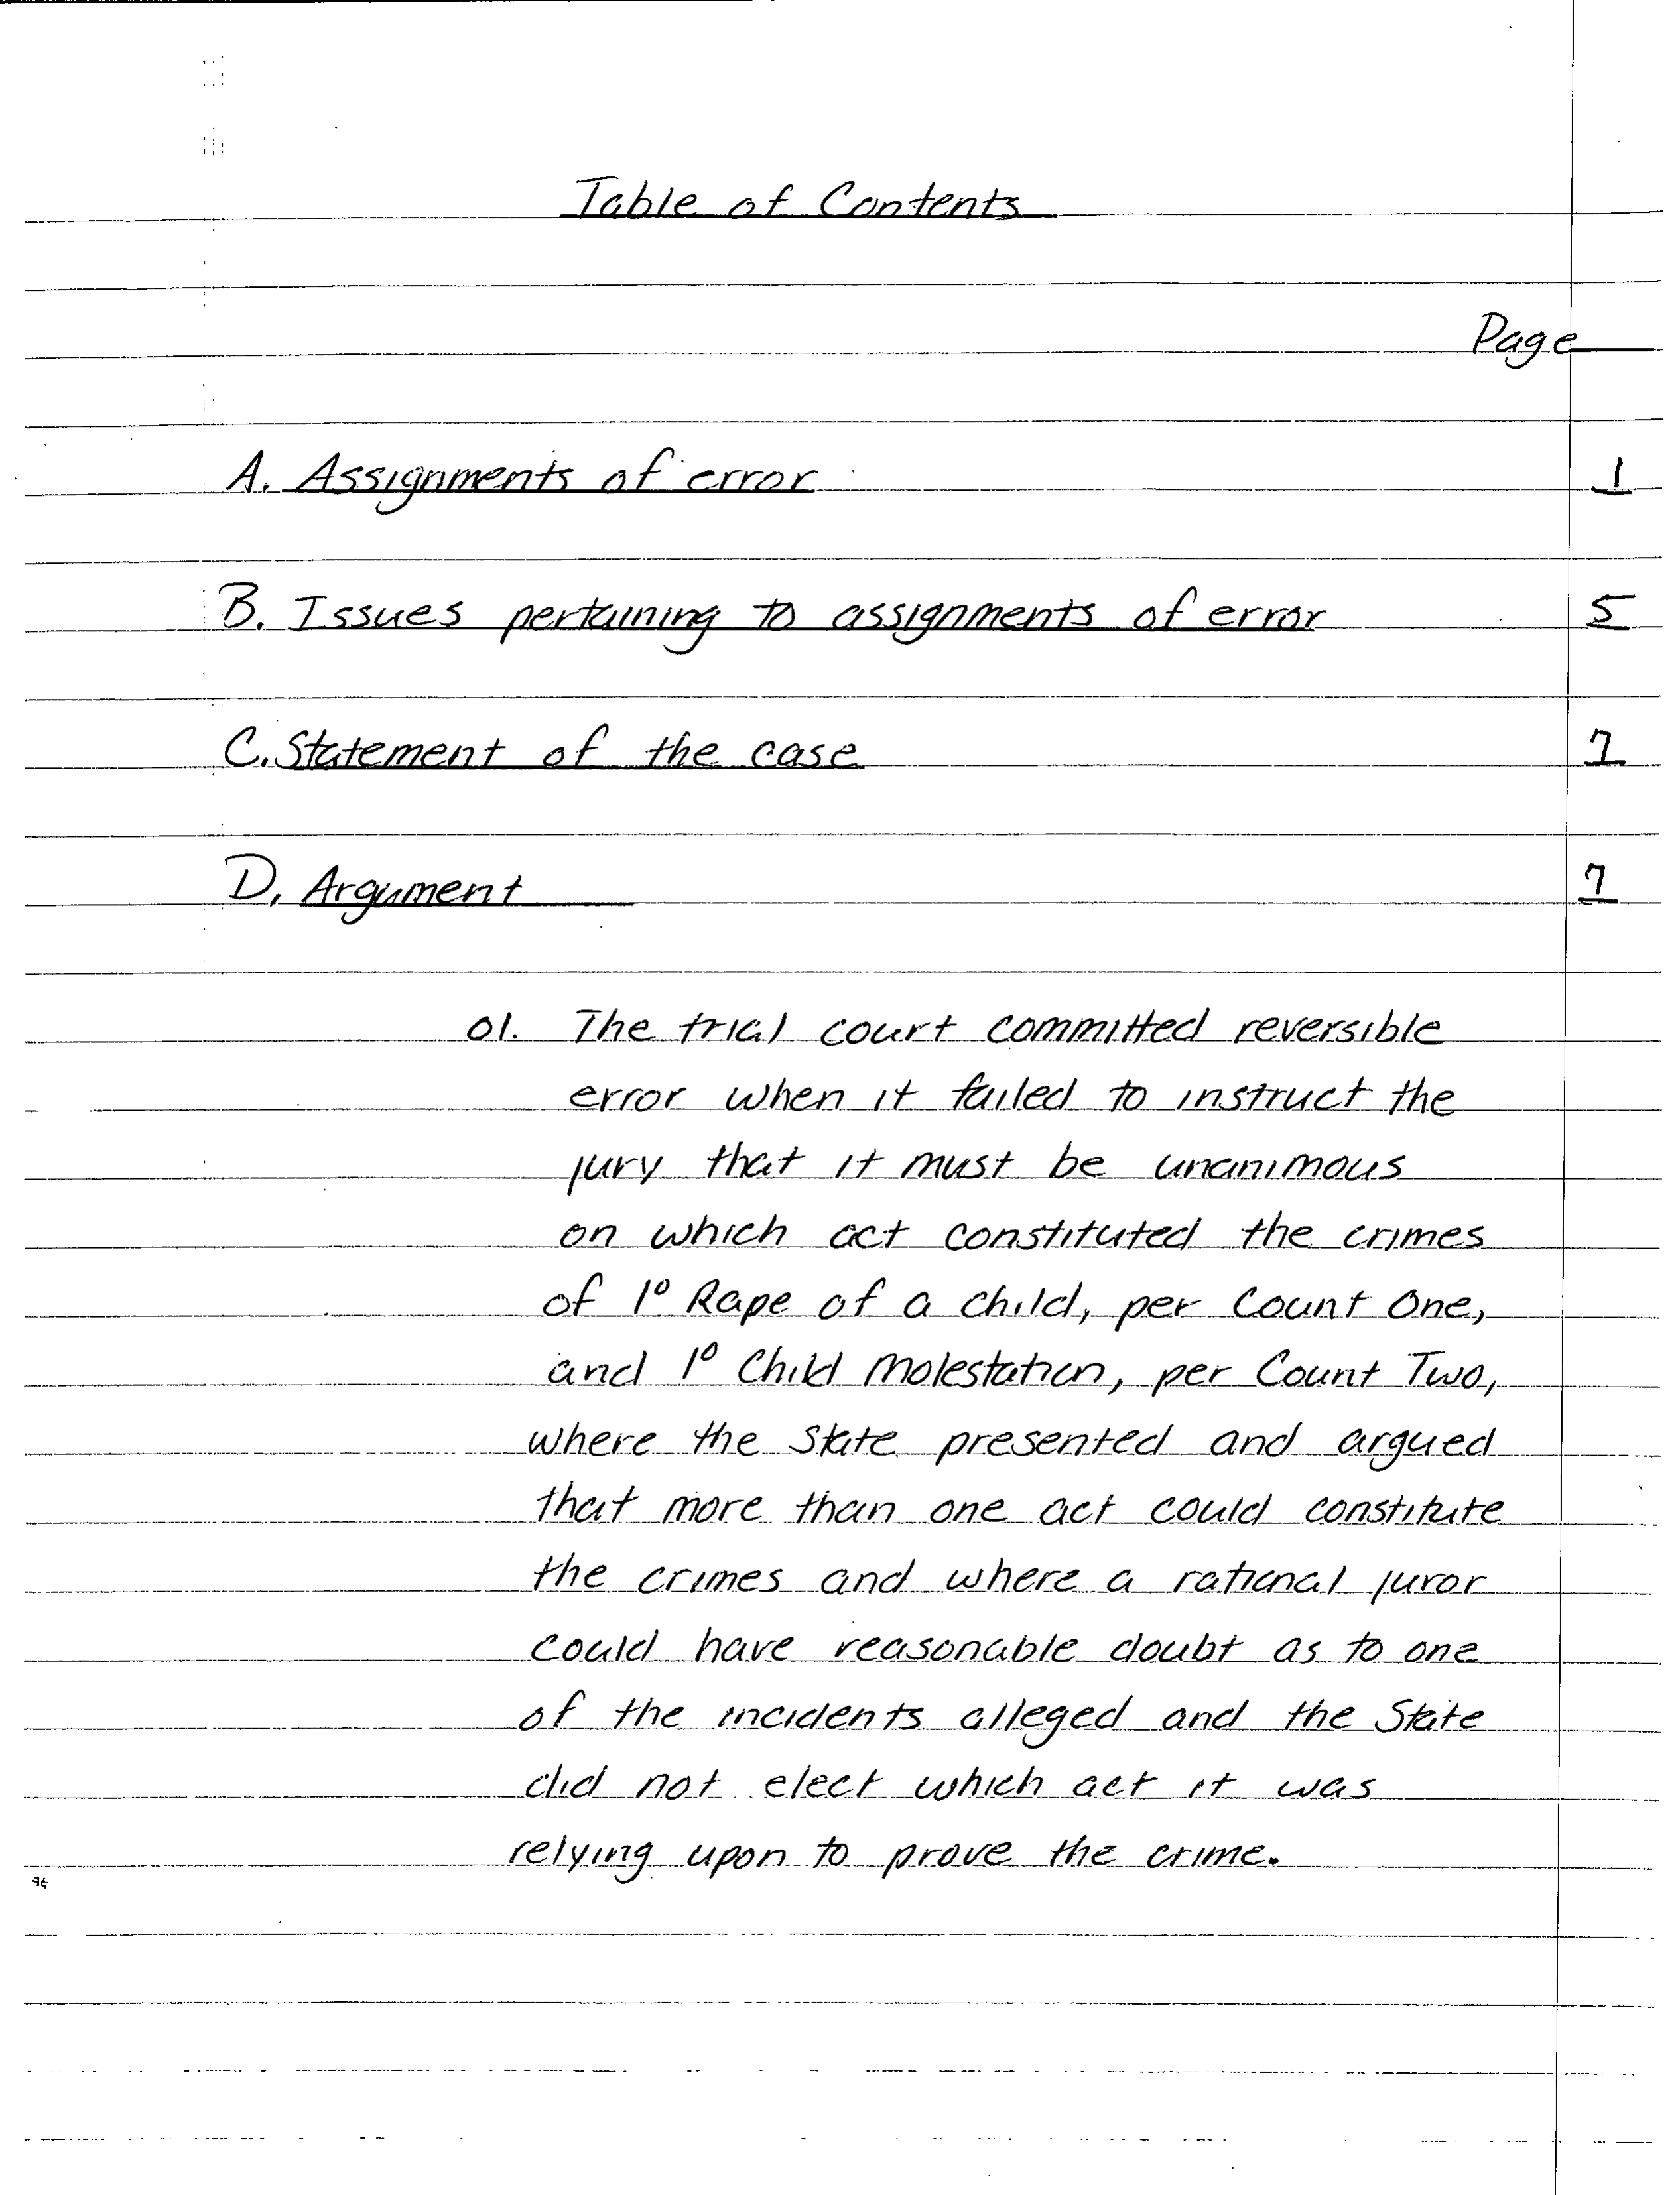 Table of Contents
Page
A. Assignments of error 1
B. Issues pertaining to assignments of error 5
C. Statement of the case 7
D. Argument 7
01. The trial court committed reversible
error when it failed to instruct the
jury that it must be unanimous
on which act constituted the crimes
of 1° Rape of a child, per Count One,
and 1° Child Molestation, per Count Two,
where the State presented and argued
that more than one act could constitute
the crimes and where a rational juror
could have reasonable doubt as to one
of the incidents alleged and the State
did not elect which act it was
relying upon to prove the crime.